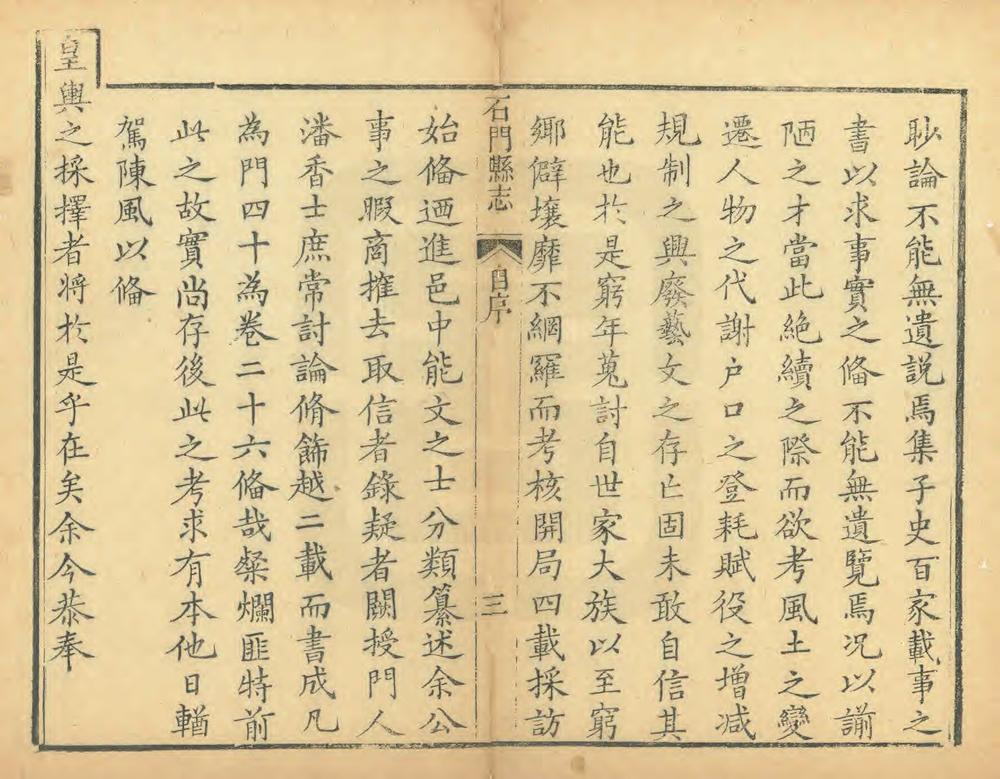 耿論不能無遺説焉集子史百家載事之
書以求事實之俻不能無遺覽焉况以謭
陋之才當此絶續之際而欲考風土之變
遷人物之代謝户口之登耗賦役之增減
規制之興廢藝文之存亡固未敢自信其
能也於是窮年蒐討自世家大族以至窮
鄉僻壤靡不網羅而考核開局四載採訪
石門縣志
自序
三
始俻迺進邑中能文之士分類纂述余公
事之暇商搉去取信者錄疑者闕授門人
潘香士庶常討論脩飾越二載而書成凡
為門四十為卷二十六俻哉粲爛匪特前
此之故實尚存後此之考求有本他日輶
駕陳風以俻
皇輿之採擇者將於是乎在矣余今恭奉